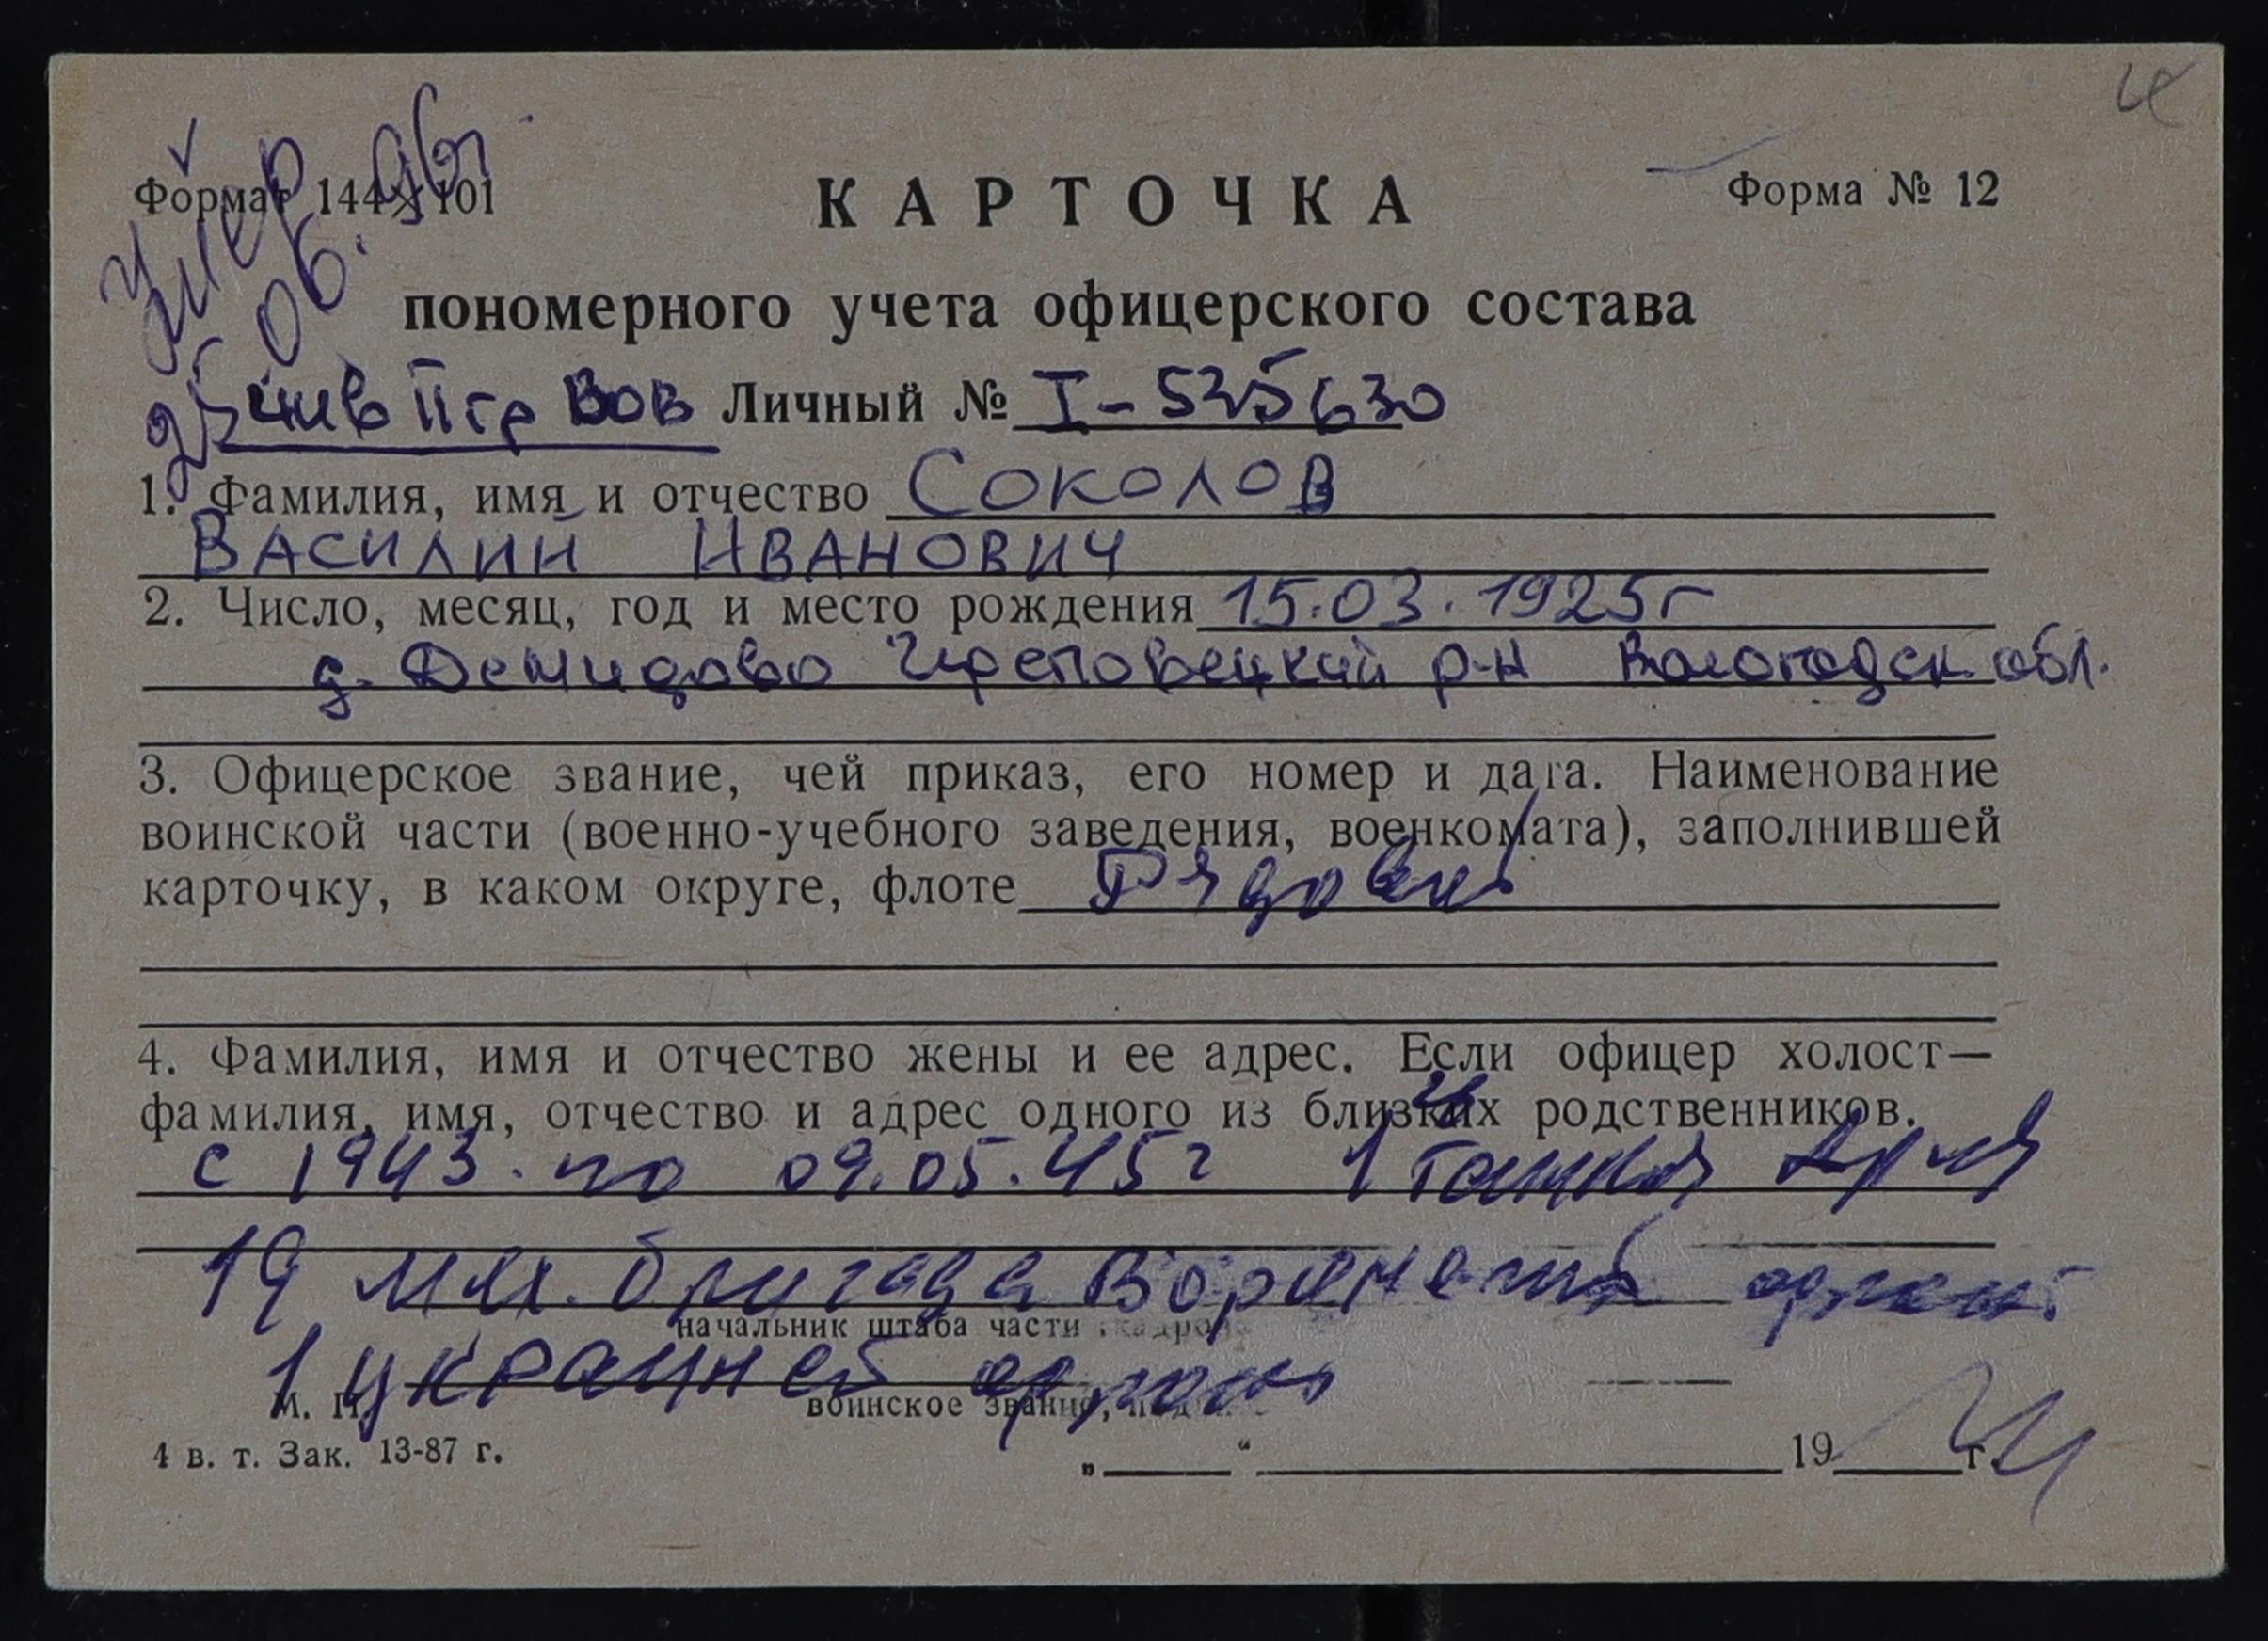 Умер
25.06.96г.
Формат 144×101
КАРТОЧКА
Форма № 12
пономерного учета офицерского состава
инв II гр ВОВ Личный № I-525630
1. Фамилия, имя и отчество СОКОЛОВ
ВАСИЛИЙ ИВАНОВИЧ
2. Число, месяц, год и место рождения 15.03.1925г
д. Демидово Череповецкий р-н Вологодск обл.
3. Офицерское звание, чей приказ, его номер и дата. Наименование
воинской части (военно-учебного заведения, военкомата), заполнившей
карточку, в каком округе, флоте Рядовой
4. Фамилия, имя и отчество жены и ее адрес. Если офицер холост—
фамилия, имя, отчество и адрес одного из близких родственников.
с 1943. по 09.05.45г 1 Танков Армия
19 мех. бригада
начальник штаба части
1 Украиней
М. П.
воинское звание,
4 в. т. Зак. 13-87 г.
„ “ 19 г.